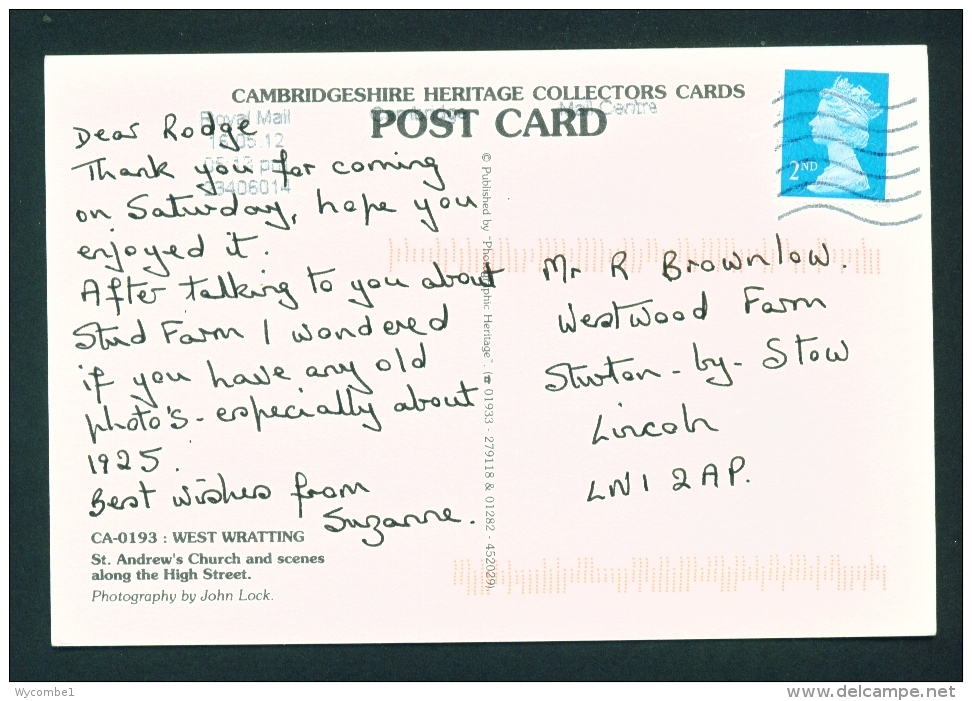 CAMBRIDGESHIRE HERITAGE COLLECTORS CARDS
POST CARD
Royal Mail
Cambridge
Mail Centre
16.05.12
05:13 pm
03406014
2ND
Dear Rodge
Thank you for coming
on Saturday, hope you
enjoyed it.
After talking to you about
Stud Farm I wondered
if you have any old
photo's - especially about
1925.
Best wishes from
Suzanne.
CA-0193 : WEST WRATTING
St. Andrew's Church and scenes
along the High Street.
Photography by John Lock.
© Published by "Photographic Heritage". (☎ 01933 - 279118 & 01282 - 452029).
Mr R Brownlow.
Westwood Farm
Sturton - by - Stow
Lincoln
LN1 2AP.
Wycombe1
www.delcampe.net